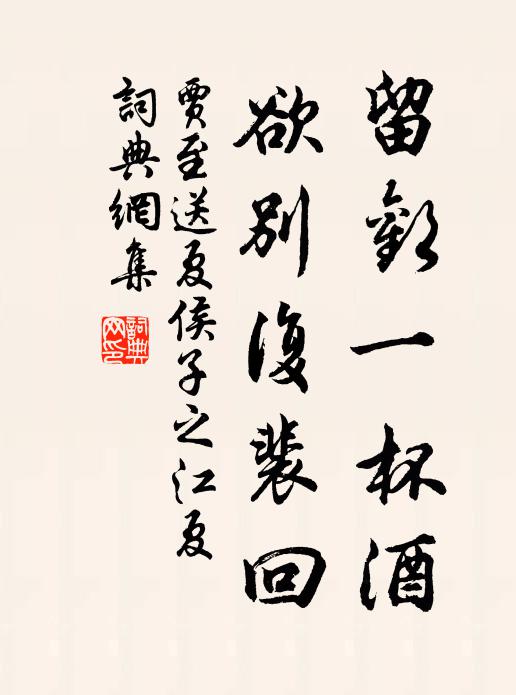 留歡一杯酒
欲別復裴回
賈至送夏侯子之江夏
詞典網集
詞典网印